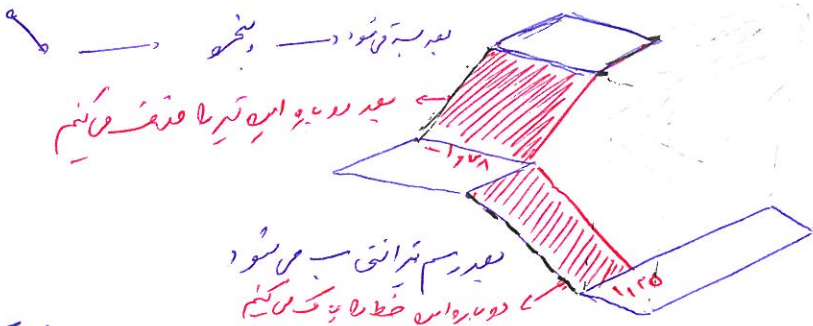 بعد بسته می‌شود — پنجره —
بعد دوباره این تیر را حذف می‌کنیم
-۱,۷۸
بعد رسم تیر افقی ب می‌شود
دوباره این خط را پاک می‌کنیم
۱,۲۵